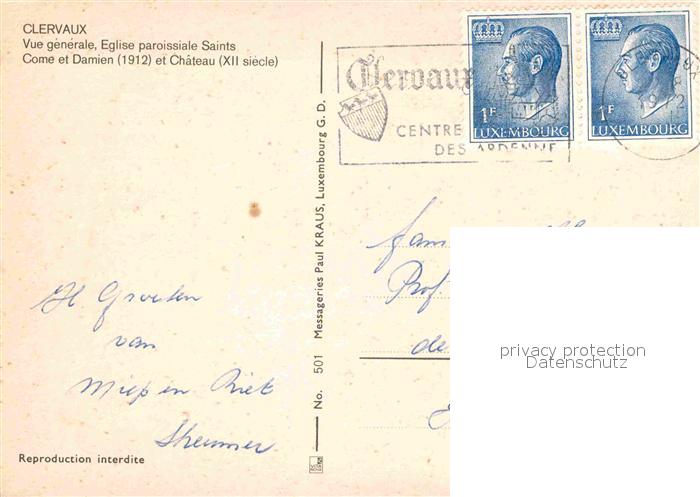 CLERVAUX
Vue générale, Eglise paroissiale Saints
Come et Damien (1912) et Château (XII siècle)
Clervaux
CENTRE
DES ARDENNE
1F
LUXEMBOURG
1F
LUXEMBOURG
No. 501 Messageries Paul KRAUS, Luxembourg G. D.
fam
Prof.
de
privacy protection
Datenschutz
H. Groeten
van
Miep en Riet
Reproduction interdite